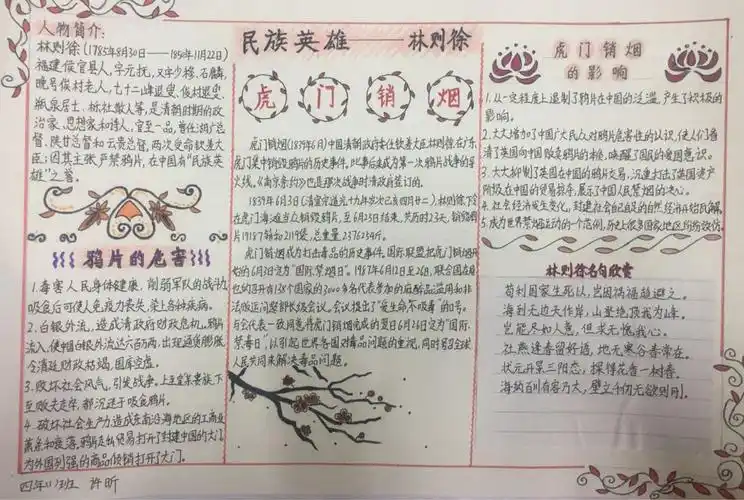 人物简介:
林则徐(1785年8月30日——1850年11月22日)
福建侯官县人,字元抚,又字少穆、石麟,
晚号俟村老人、七十二峰退叟、俟村退叟、
瓶泉居士、栎社散人等,是清朝时期的政
治家、思想家和诗人,官至一品,曾任湖广总
督、陕甘总督和云贵总督,两次受命钦差大
臣;因其主张严禁鸦片,在中国有“民族英
雄”之誉。
鸦片的危害
1.毒害人民身体健康,削弱军队的战斗力
吸食后可使人免疫力丧失,染上各种疾病。
2.白银外流,造成清政府财政危机。鸦片
流入,使中国白银外流达六百万两,出现通货膨胀,
令清廷财政枯竭,国库空虚。
3.败坏社会风气,引发战争,上至皇亲贵族下
至贩夫走卒,都沉迷于吸食鸦片。
4.破坏社会生产力,造成东南沿海地区的工商业
萧条和衰落。鸦片走私贸易打开了封建中国的大门,
为外国列强的商品倾销打开了大门。
四年11班 许昕
民族英雄——林则徐
虎门销烟
虎门销烟(1839年6月)中国清朝政府委任钦差大臣林则徐在广东
虎门集中销毁鸦片的历史事件。此事后来成为第一次鸦片战争的导
火线,《南京条约》也是那次战争时清政府签订的。
1839年6月3日(清宣宗道光十九年岁次己亥四月廿二),林则徐下令
在虎门海滩当众销毁鸦片,至6月25日结束,共历时23天,销毁鸦
片19187箱和2119袋,总重量2376254斤。
虎门销烟成为打击毒品的历史事件。国际联盟把虎门销烟开
始的6月3日定为“国际禁烟日”。1987年6月12日至26日,联合国在维
也纳召开有138个国家的3000多名代表参加的麻醉品滥用和非
法贩运问题部长级会议。会议提出了“爱生命不吸毒”的口号。
与会代表一致同意将虎门销烟完成的翌日6月26日定为“国际
禁毒日”,以引起世界各国对毒品问题的重视,同时号召全球
人民共同来解决毒品问题。
虎门销烟
的影响
1.从一定程度上遏制了鸦片在中国的泛滥,产生了积极的
影响。
2.大大增加了中国广大民众对鸦片危害性的认识,使人们看
清了英国向中国贩卖鸦片的本质,唤醒了国民的爱国意识。
3.大大抑制了英国在中国的鸦片交易,沉重打击了英国资产
阶级在中国的贸易掠夺,展示了中国人民禁烟的决心。
4.社会经济发生变化,封建社会自己自足的自然经济开始瓦解。
5.成为世界禁烟运动的一个范例,历史上很多国家地区纷纷效仿。
林则徐名句欣赏
苟利国家生死以,岂因祸福趋避之。
海到无边天作岸,山登绝顶我为峰。
岂能尽如人意,但求无愧我心。
社燕逢春留好语,地无寒谷春常在。
状元开笔三阳花,探得花香一树春。
海纳百川有容乃大,壁立千仞无欲则刚。